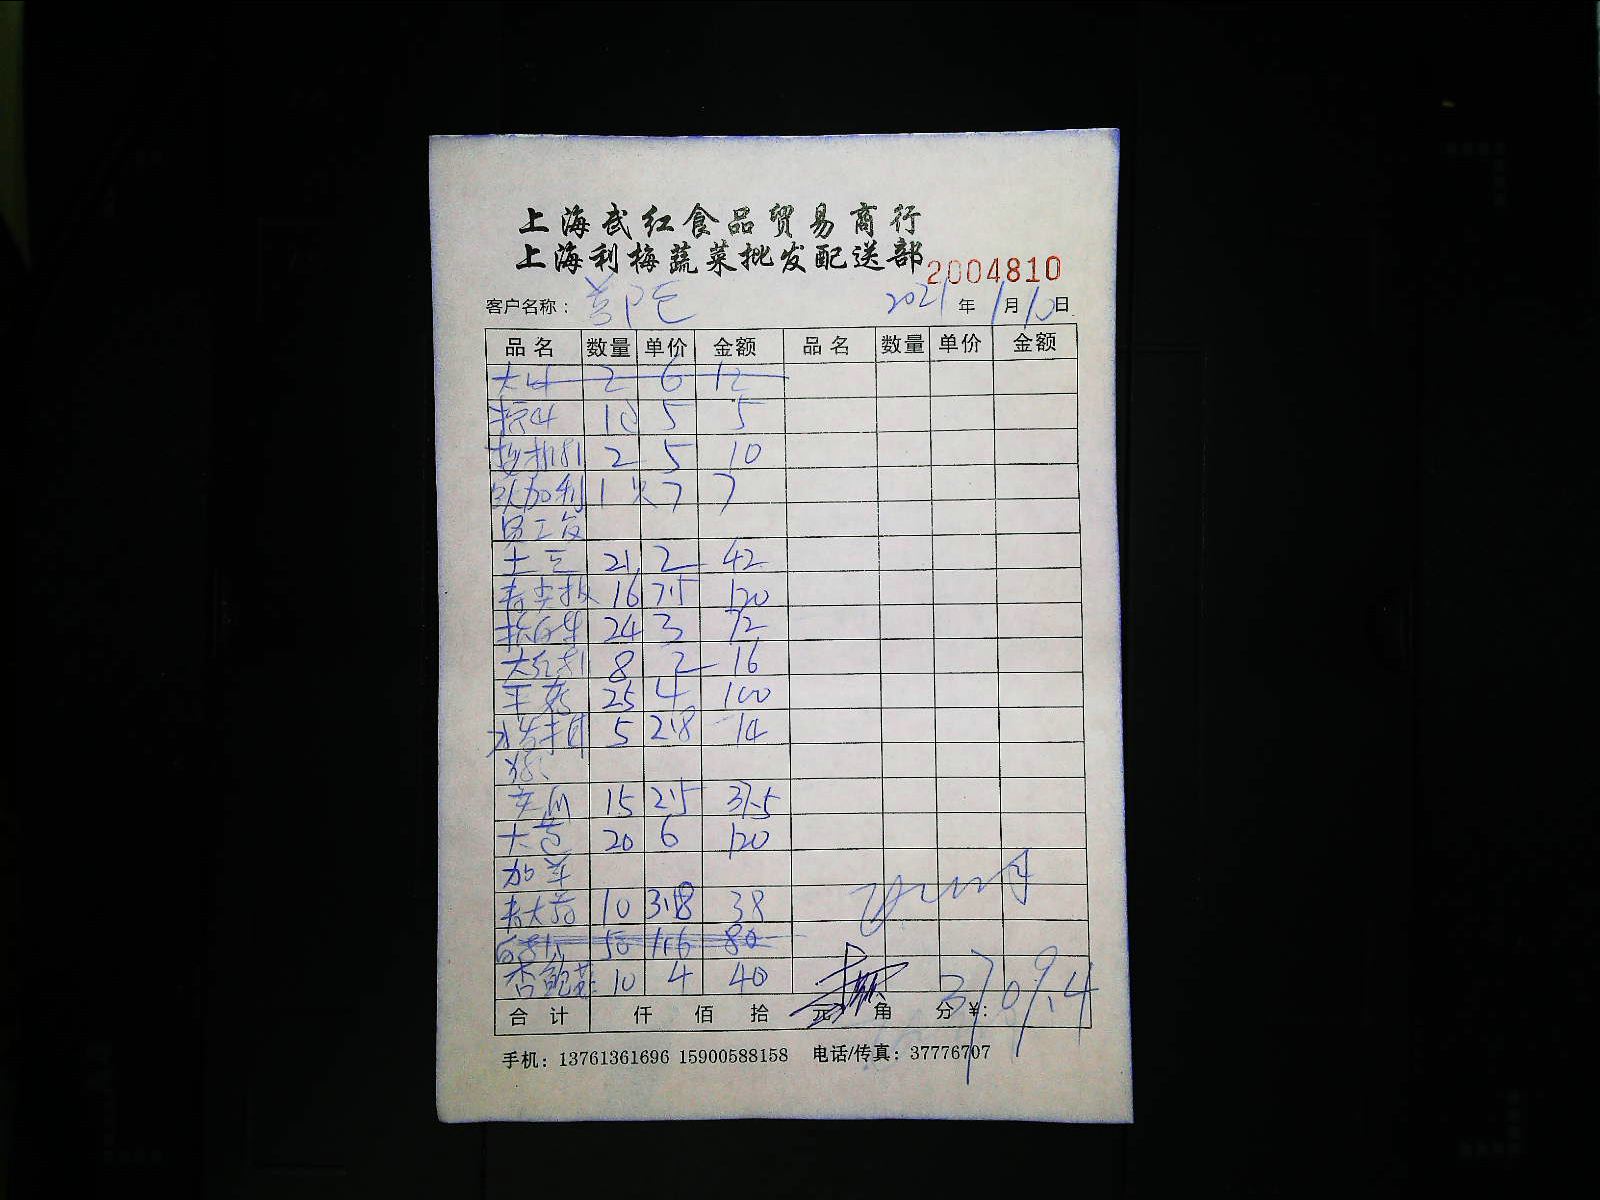 上海武红食品贸易商行
上海利梅蔬菜批发配送部
2004810
客户名称： 2021年1月10日
品名 数量 单价 金额 品名 数量 单价 金额
2 6 12
10 5 5
2 5 10
1 7 7
员工餐
土豆 21 2 42
16 7.5 120
24 3 72
8 2 16
平菇 25 4 100
5 2.8 14
15 2.5 37.5
大葱 20 6 120
加菜
10 3.8 38
50 1.6 80
杏鲍菇 10 4 40
合计 仟 佰 拾 元 角 分 ¥: 3709.4
手机：13761361696 15900588158 电话/传真：37776707